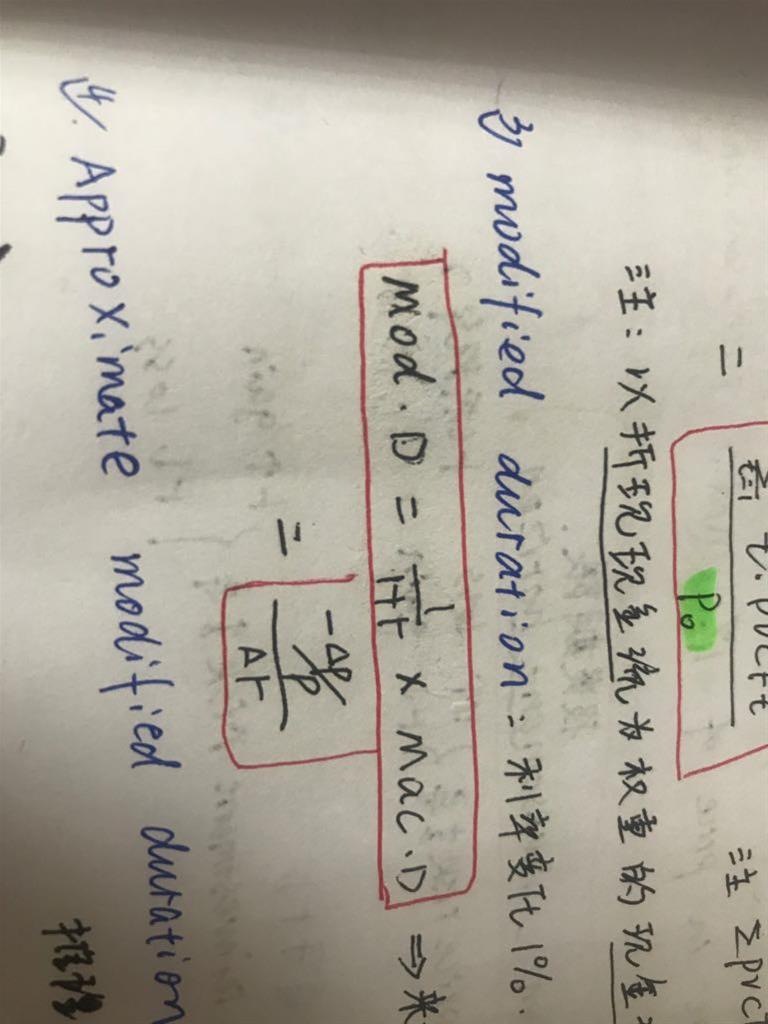 = Σ t·PVCFt / P₀
注 ΣPVC
注：以折现现金流为权重的现金
3) modified duration：利率变化1%.
Mod.D = 1/1+r × Mac.D ⇒
= -ΔP/P / Δr
4). Approximate modified duration